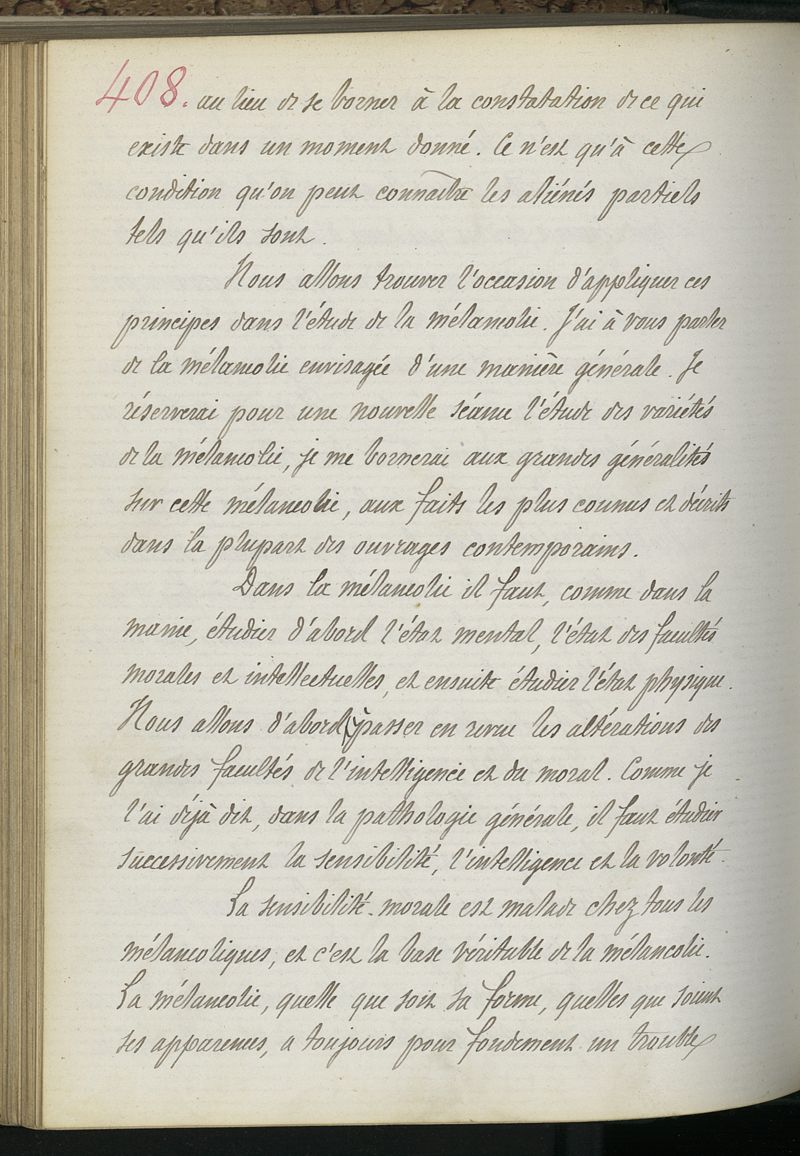 408. au lieu de se borner à la constatation de ce qui
existe dans un moment donné. Ce n'est qu'à cette
condition qu'on peut connaître les aliénés partiels
tels qu'ils sont.
Nous allons trouver l'occasion d'appliquer ces
principes dans l'étude de la mélancolie. J'ai à vous parler
de la mélancolie envisagée d'une manière générale. Je
réserverai pour une nouvelle séance l'étude des variétés
de la mélancolie, je me bornerai aux grandes généralités
sur cette mélancolie, aux faits les plus connus et décrits
dans la plupart des ouvrages contemporains.
Dans la mélancolie il faut, comme dans la
manie, étudier d'abord l'état mental, l'état des facultés
morales et intellectuelles, et ensuite étudier l'état physique.
Nous allons d'abord passer en revue les altérations des
grandes facultés de l'intelligence et du moral. Comme je
l'ai déjà dit, dans la pathologie générale, il faut étudier
successivement la sensibilité, l'intelligence et la volonté.
La sensibilité morale est malade chez tous les
mélancoliques, et c'est la base véritable de la mélancolie.
La mélancolie, quelle que soit sa forme, quelles que soient
ses apparences, a toujours pour fondement un trouble